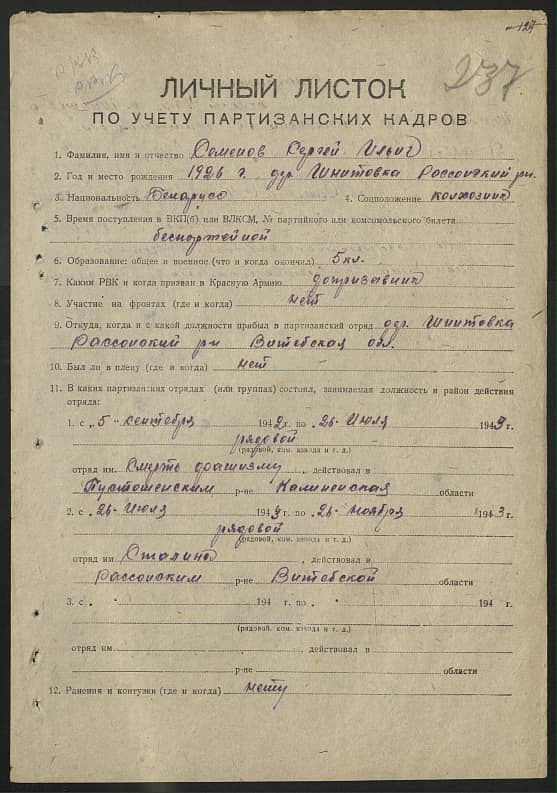 127
237
ЛИЧНЫЙ ЛИСТОК
ПО УЧЕТУ ПАРТИЗАНСКИХ КАДРОВ
1. Фамилия, имя и отчество Семенов Сергей Ильич
2. Год и место рождения 1926 г. дер. Шнитовка Россонский рн.
3. Национальность Беларусс 4. Соцположение колхозник
5. Время поступления в ВКП(б) или ВЛКСМ, № партийного или комсомольского билета
беспартейной
6. Образование: общее и военное (что и когда окончил) 5 кл.
7. Каким РВК и когда призван в Красную Армию допризавник
8. Участие на фронтах (где и когда) нет
9. Откуда, когда и с какой должности прибыл в партизанский отряд дер. Шнитовка
Рассонский р-н Витебская обл.
10. Был ли в плену (где и когда) нет
11. В каких партизанских отрядах (или группах) состоял, занимаемая должность и район действия
отряда:
1. с „5" сентября 1942 г. по „26" Июля 1943 г.
рядовой
(рядовой, ком. взвода и т. д.)
отряд им. Смерть фашизму, действовал в
Пустошенским р-не Калиненская области
2. с „26" Июля 1943 г. по „26" ноября 1943 г.
рядовой
(рядовой, ком. взвода и т. д.)
отряд им Сталина, действовал в
Рассонским р-не Витебской области
3. с „ " 194 г. по „ " 194 г.
(рядовой, ком. взвода и т. д.)
отряд им. , действовал в
р-не области
12. Ранения и контузии (где и когда) нету